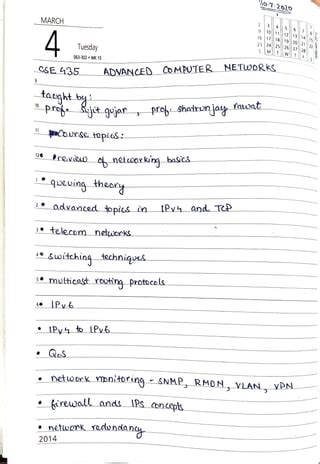 10.7.2020
MARCH
4
Tuesday
063-302 • WK 10
CSE 435 ADVANCED COMPUTER NETWORKS
taught by:
prof. Sujit gujar, prof. shatrunjay rawat
Course topics:
• review of networking basics
• queuing theory
• advanced topics in IPv4 and TCP
• telecom networks
• switching techniques
• multicast routing protocols
• IPv6
• IPv4 to IPv6
• QoS
• network monitoring - SNMP, RMON, VLAN, VPN
• firewall ands IPS concepts
• network redundancy
2014